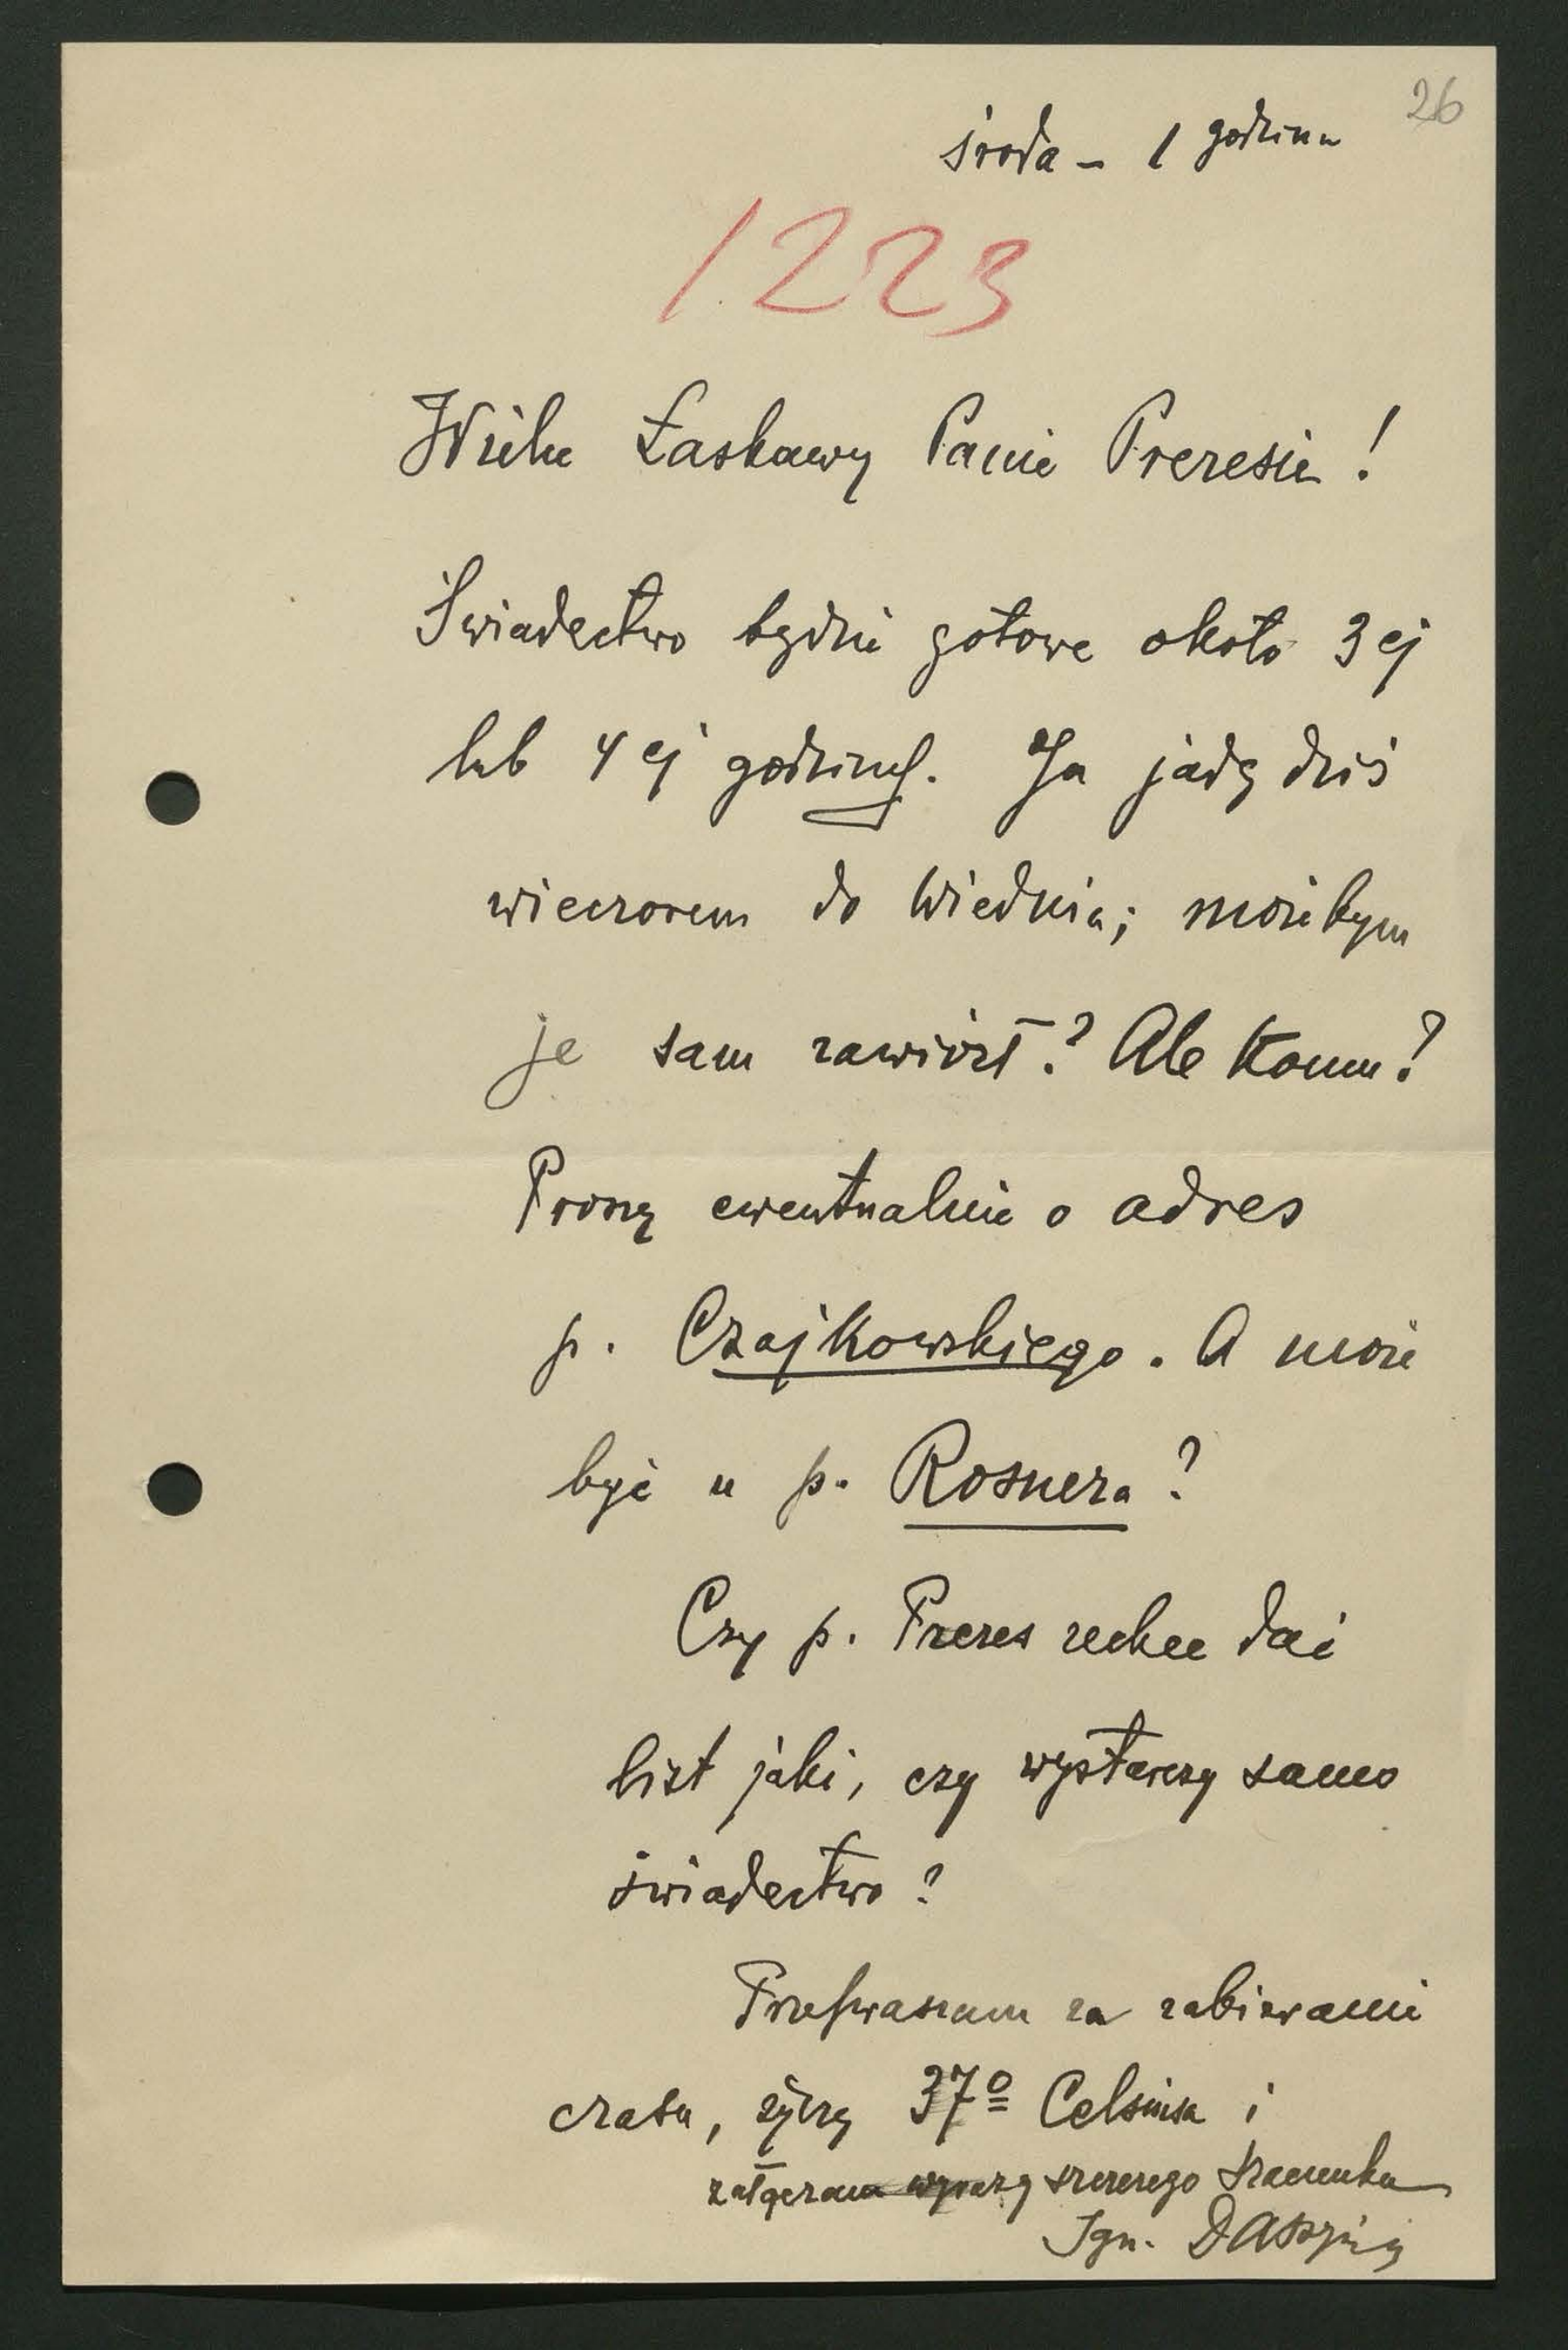 26
środa – 1 godzina
1223
Wielce Łaskawy Panie Prezesie!
Świadectwo będzie gotowe około 3 ej
lub 4 ej godziny. Ja jadę dziś
wieczorem do Wiednia; możebym
je sam zawiózł? Ale komu?
Proszę ewentualnie o adres
p. Czajkowskiego. A może
być u p. Rosnera?
Czy p. Prezes zechce dać
list jaki, czy wystarczy samo
świadectwo?
Przepraszam za zabieranie
czasu, życzę 37º Celsiusa i
załączam wyrazy szczerego szacunku
Ign. Daszyński